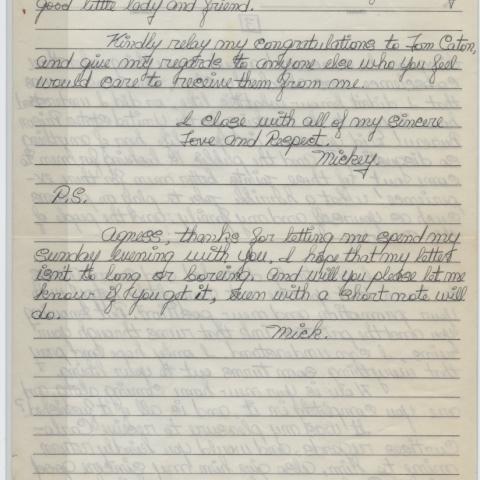 good little lady and friend.
Kindly relay my congratulations to Tom Caton,
and give my regards to anyone else who you feel
would care to receive them from me.
I close with all of my sincere
Love and Respect.
Mickey
P.S.
Agness, thanks for letting me spend my
Sunday evening with you, I hope that my letter
isn't to long or boreing. And will you please let me
know if you got it, even with a short note will
do.
Mick.